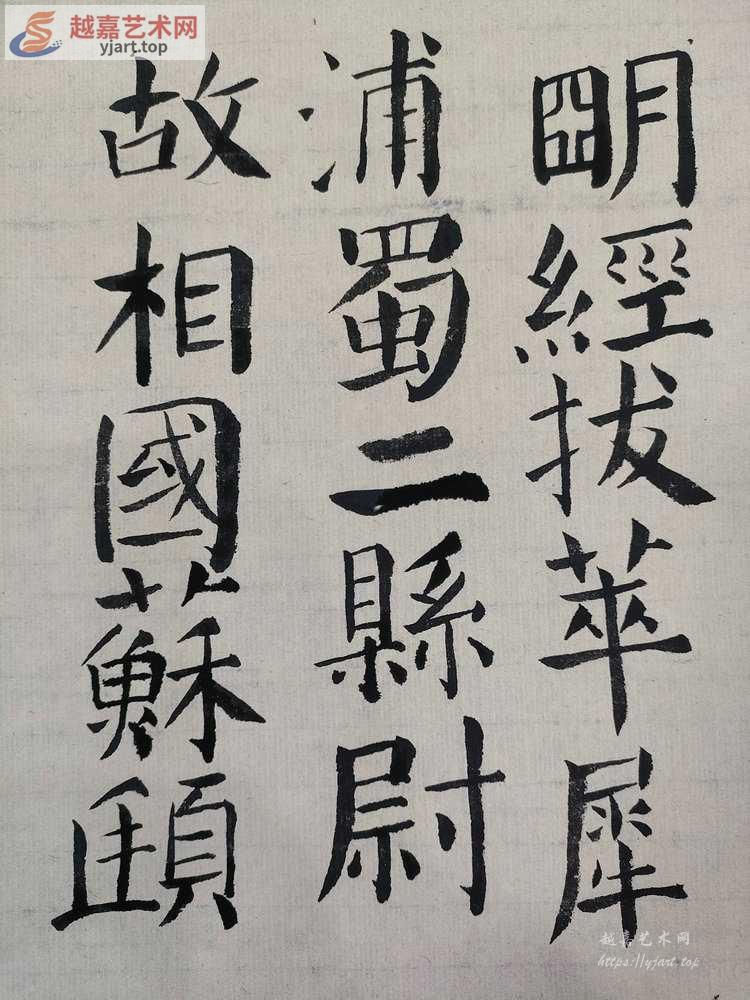 越嘉艺术网
yjart.top
朙經拔萃犀
浦蜀二縣尉
故相國蘇頲
越嘉艺术网
https://yjart.top